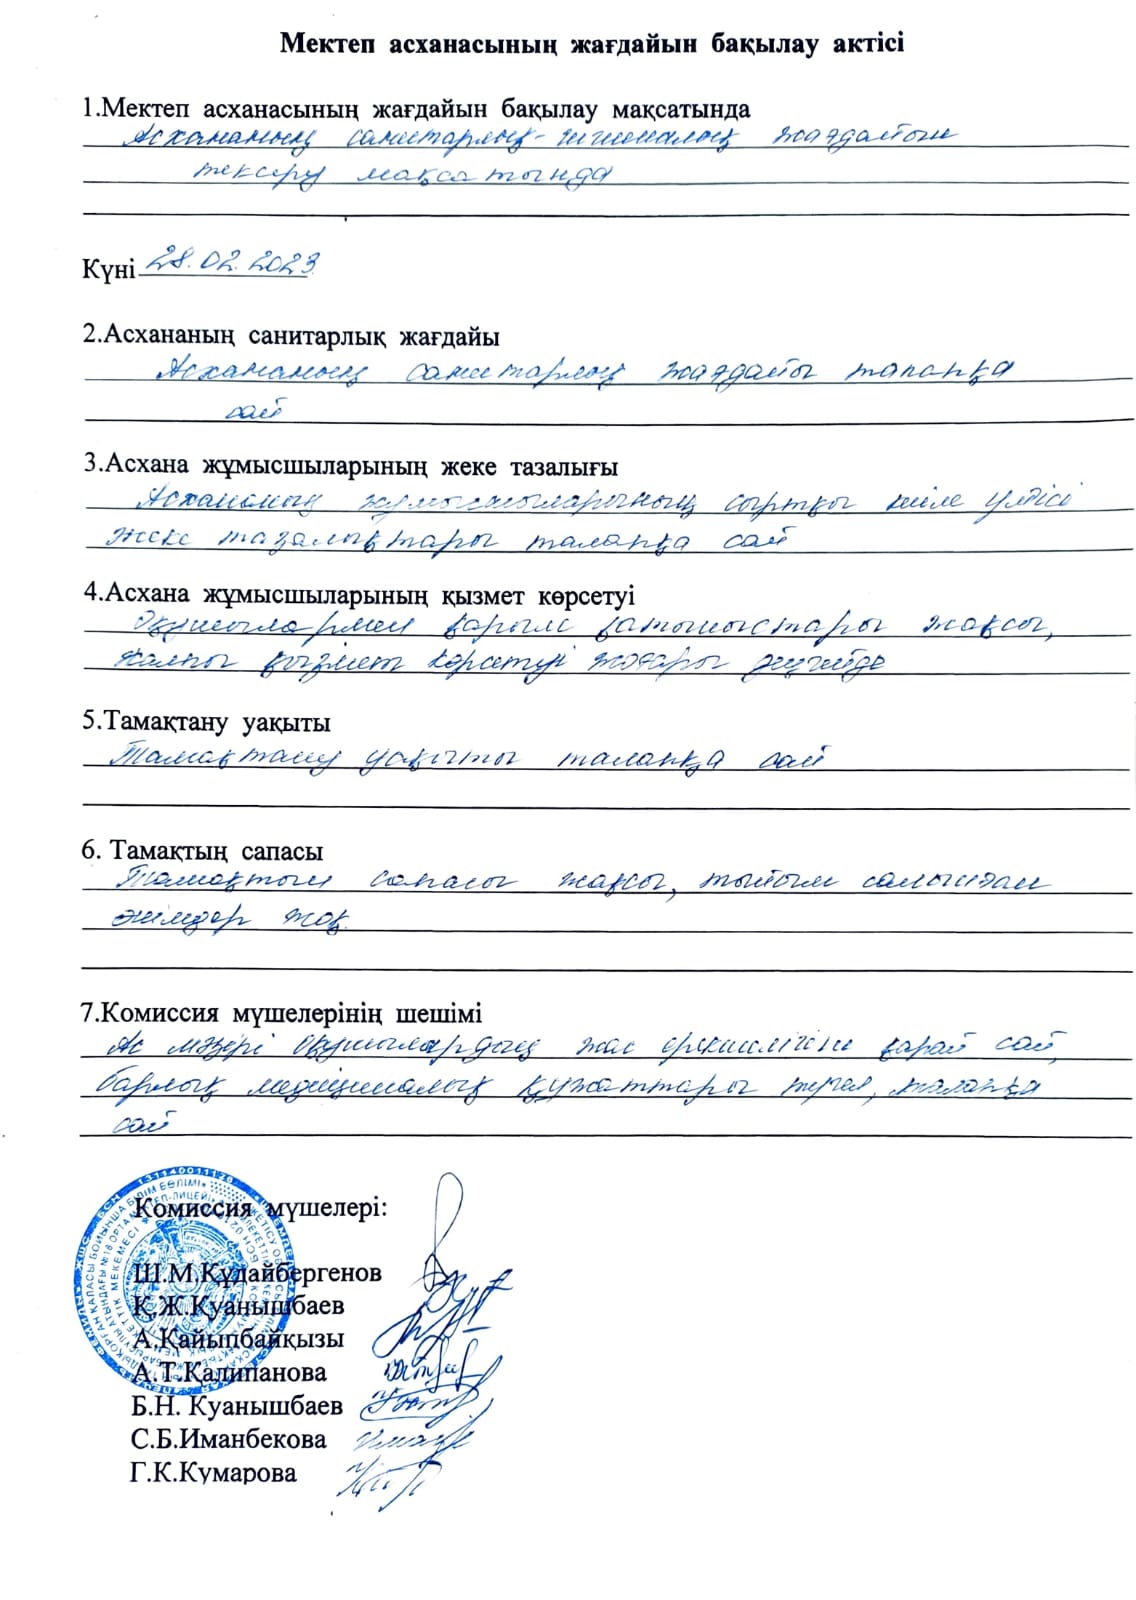 Мектеп асханасының жағдайын бақылау актісі
1.Мектеп асханасының жағдайын бақылау мақсатында
Асхананың санитарлық-гигиеналық жағдайын
тексеру мақсатында
Күні 28.02.2023
2.Асхананың санитарлық жағдайы
Асхананың санитарлық жағдайы талапқа
сай
3.Асхана жұмысшыларының жеке тазалығы
Асхананың жұмысшыларының сыртқы киім үлгісі
жеке тазалықтары талапқа сай
4.Асхана жұмысшыларының қызмет көрсетуі
Оқушылармен қарым қатыныстары жақсы,
жалпы қызмет көрсетуі жоғары деңгейде
5.Тамақтану уақыты
Тамақтану уақыты талапқа сай
6. Тамақтың сапасы
Тамақтың сапасы жақсы, тыйым салынған
өнімдер жоқ.
7.Комиссия мүшелерінің шешімі
Ас мәзірі оқушылардың жас ерекшелігіне қарай сай,
барлық медициналық құжаттары түгел, талапқа
сай
Комиссия мүшелері:
Ш.М.Құдайбергенов
Қ.Ж.Қуанышбаев
А.Қайыпбайқызы
А.Т.Қалипанова
Б.Н. Куанышбаев
С.Б.Иманбекова
Г.К.Кумарова